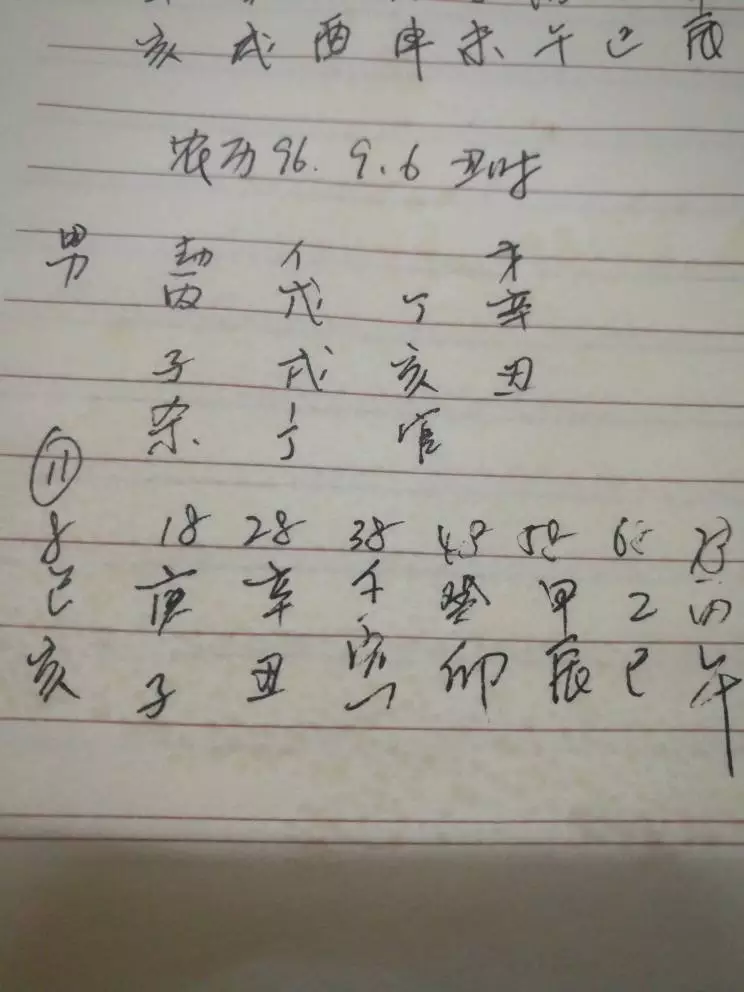 亥 戌 酉 申 未 午 巳 辰
农历 96. 9. 6 丑时
男 劫 亻 才
丙 戊 丁 辛
子 戌 亥 丑
杀 官
11
8 18 28 38 48 58 68
己 庚 辛 壬 癸 甲 乙 丙
亥 子 丑 寅 卯 辰 巳 午